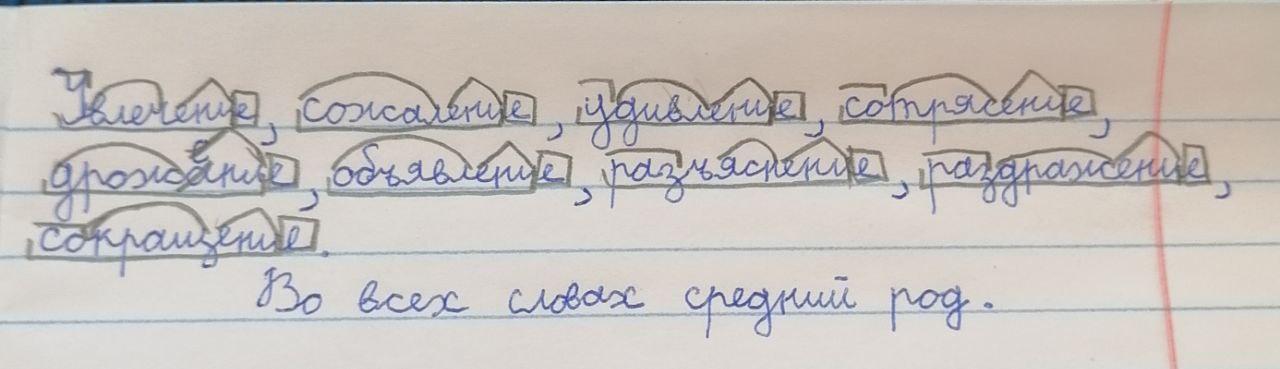 Увлечение, сожаление, удивление, сотрясение,
дрожение, объявление, разъяснение, раздражение,
сокращение.
Во всех словах средний род.